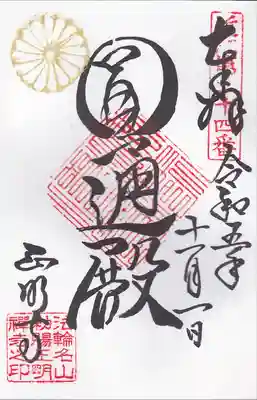 奉拝
四番
令和五年
十一月一日
圓通殿
正明寺
法輪名山
勅賜正明
禪寺之印